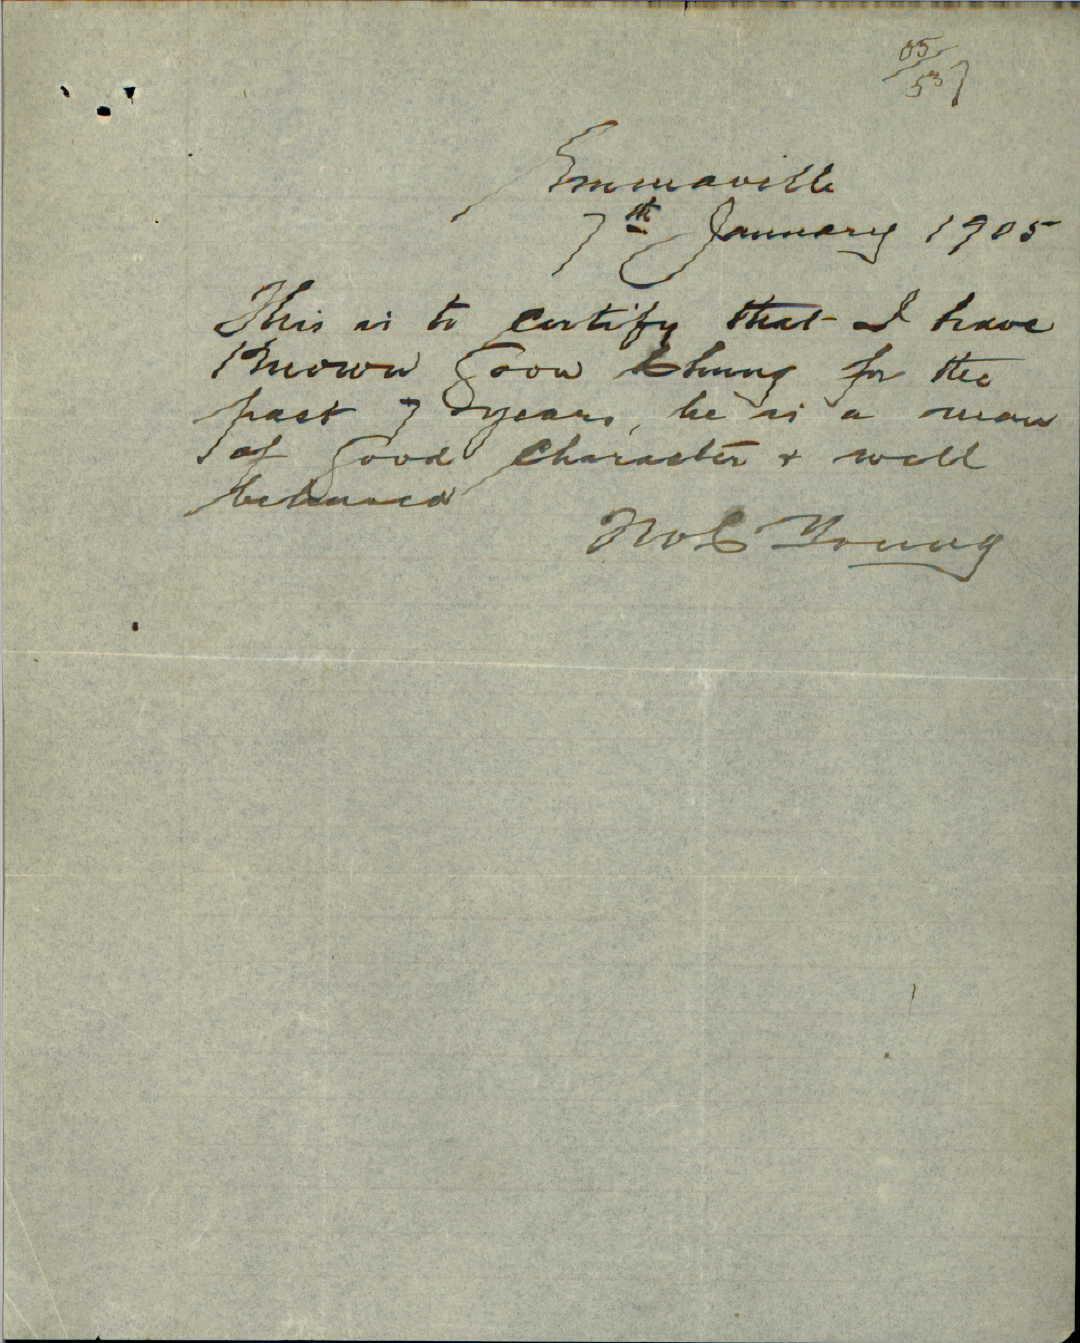 05/537
Emmaville
7th January 1905
This is to certify that I have
Known Goon Chung for the
past 7 years, he is a man
of good character & well
behaved
Young